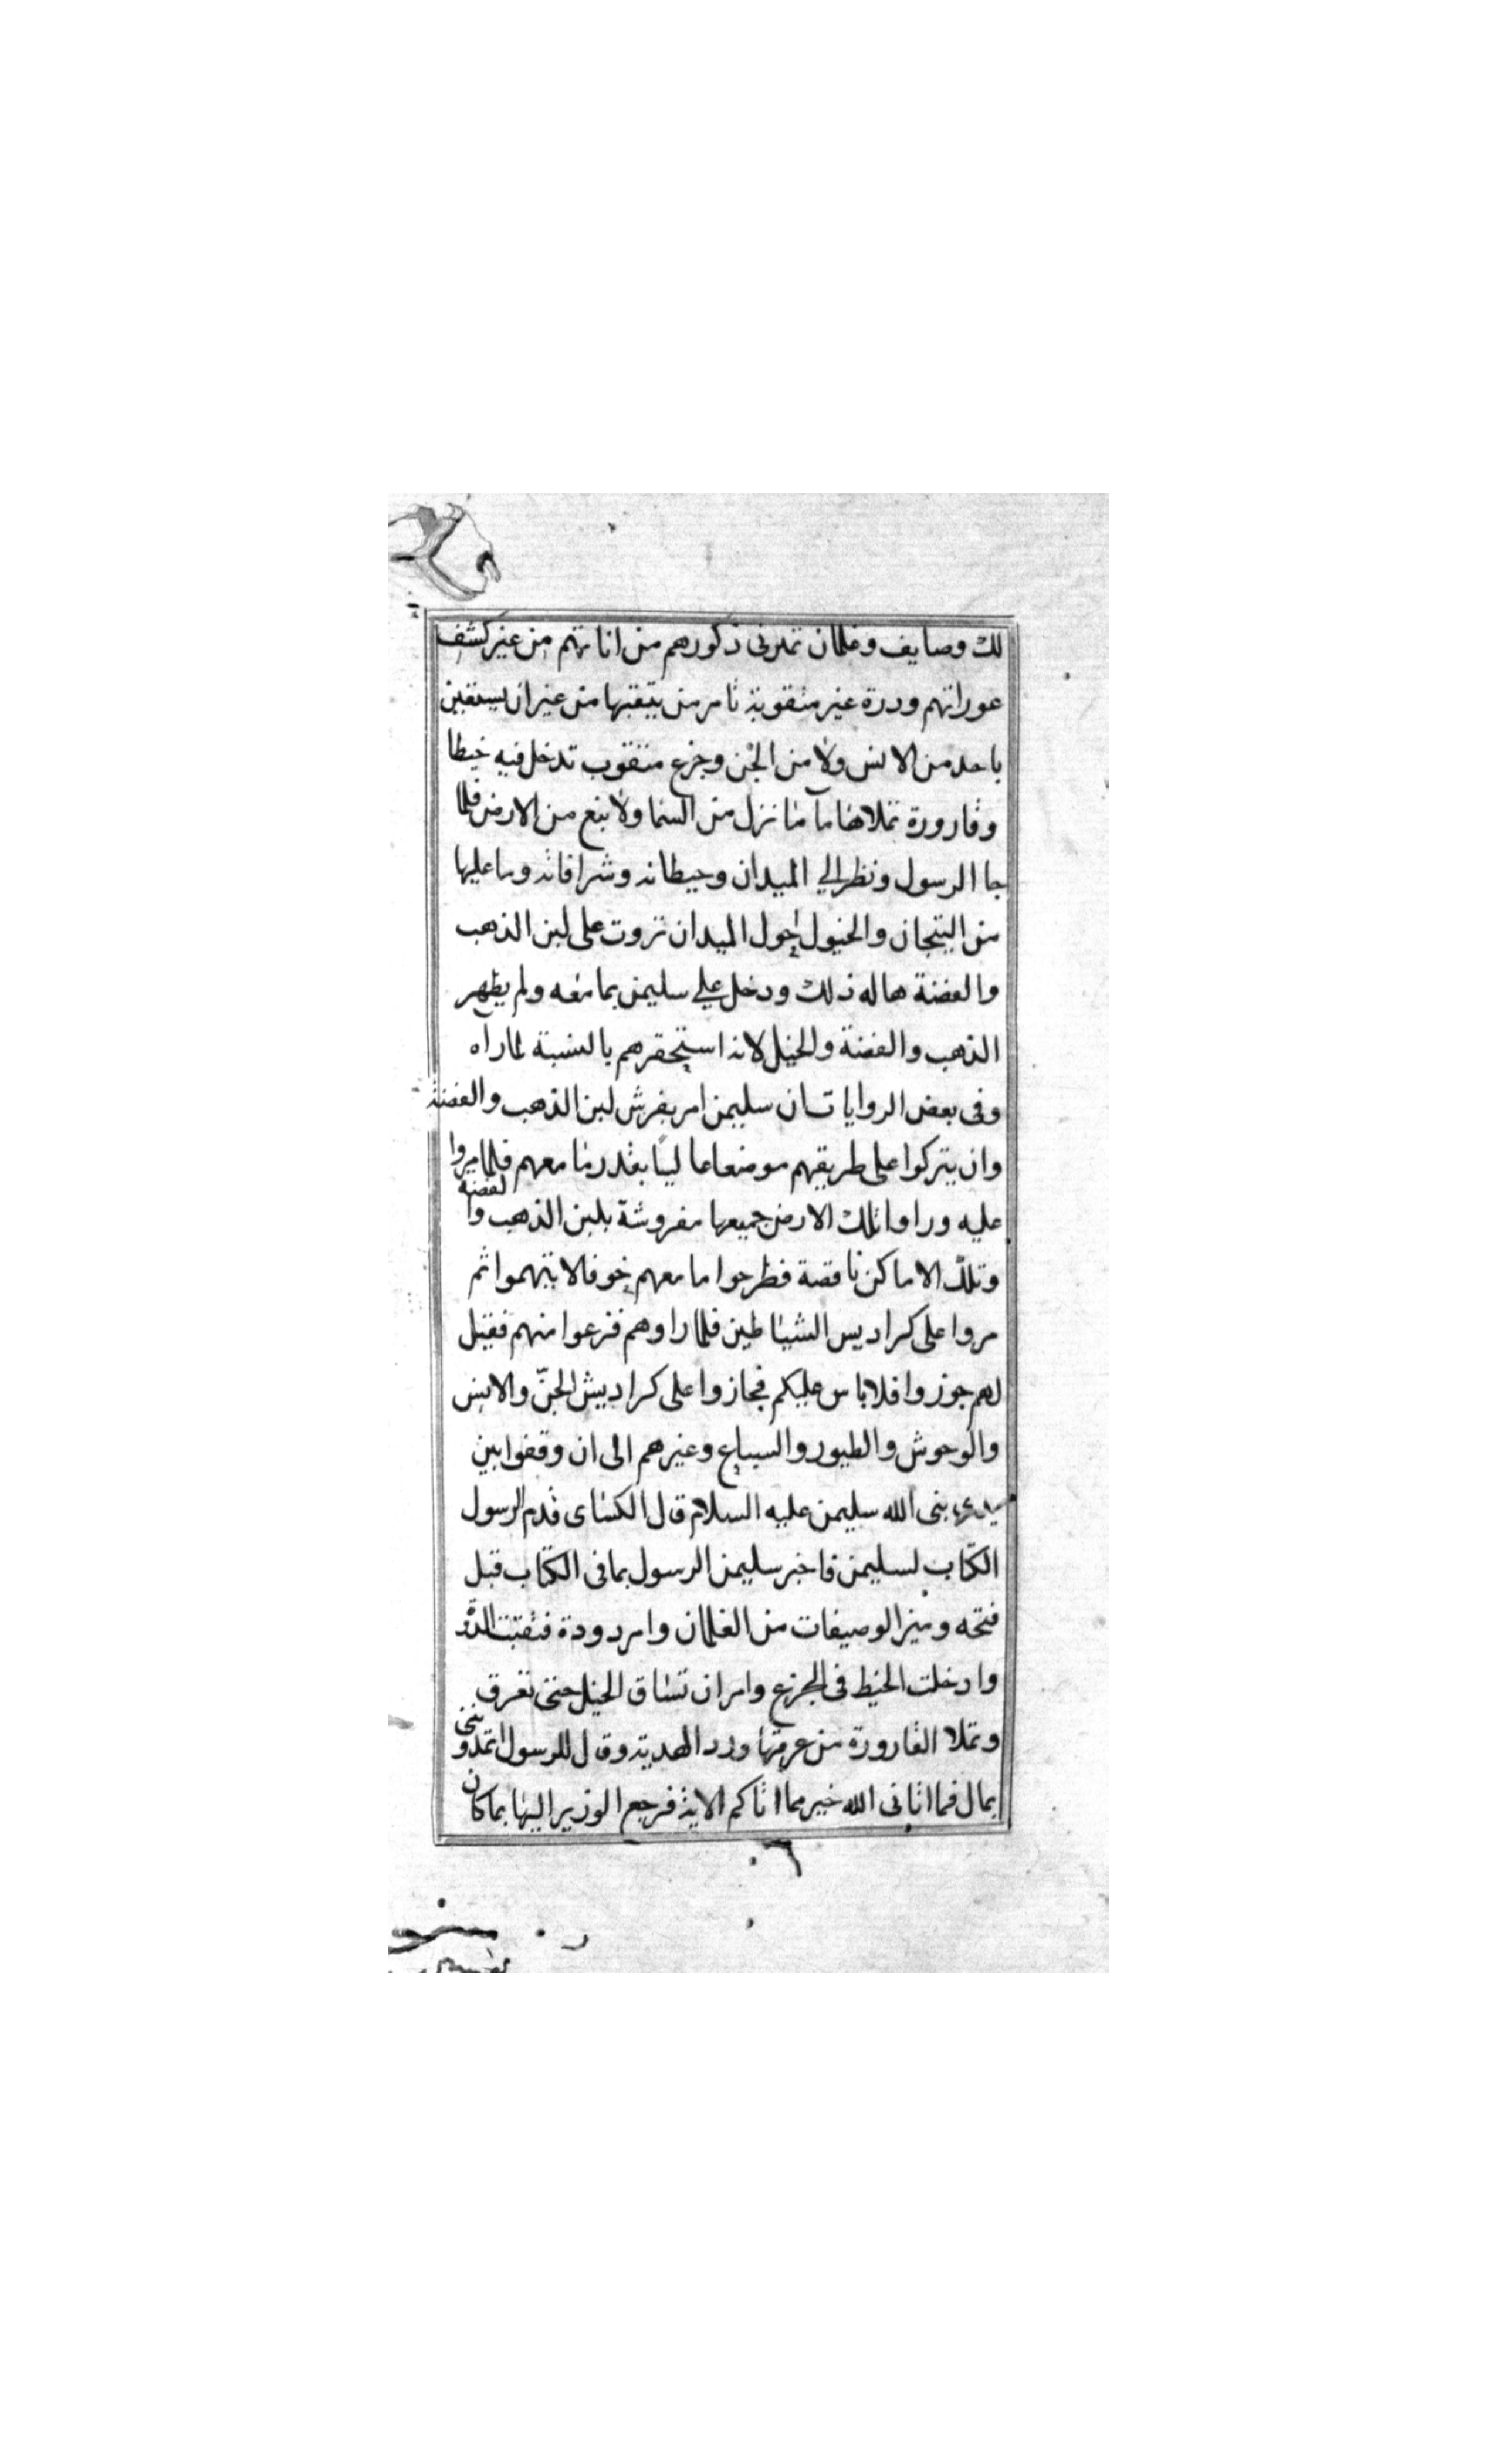 لك وصايف وغلمان تميز لى ذكورهم من اناثهم من غير كشف
عوراتهم ودرة غير مثقوبة تامر من يثقبها من غير ان يستعين
باحد من الانس ولا من الجن وجزع مثقوب تدخل فيه خيطا
وقارورة تملاها مآ ما نزل من السما ولا نبع من الارض فلما
جا الرسول ونظر الي الميدان وحيطانه وشرافاته وما عليها
من التيجان والخيول حول الميدان تروث على لبن الذهب
والفضة هاله ذلك ودخل علي سليمن بما معه ولم يظهر
الذهب والفضة والخيل لانه استحقرهم بالنسبة لما رآه
وفى بعض الروايات ان سليمن امر بفرش لبن الذهب والفضة
وان يتركوا على طريقهم موضعا خاليا بقدر ما معهم فلما مروا
عليه وراوا تلك الارض جميعها مفروشة بلبن الذهب والفضة
وتلك الاماكن ناقصة فطرحوا ما معهم خوفا لا يتهموا ثم
مروا على كراديس الشياطين فلما راوهم فزعوا منهم فقيل
لهم جوزوا فلا باس عليكم فجازوا على كراديس الجن والانس
والوحوش والطيور والسباع وغيرهم الى ان وقفوا بين
يدى نبى الله سليمن عليه السلام قال الكساى فدم الرسول
الكتاب لسليمن فاخبر سليمن الرسول بما فى الكتاب قبل
فتحه وميز الوصيفات من الغلمان وامر دودة فثقبت الدر
وادخلت الخيط فى الجزع وامر ان تساق الخيل حتى تعرق
وتملا القارورة من عرقها ورد الهدية وقال للرسول اتمدوننى
بمال فما اتانى الله خير مما اتاكم الاية فرجع الوزير اليها بما كان